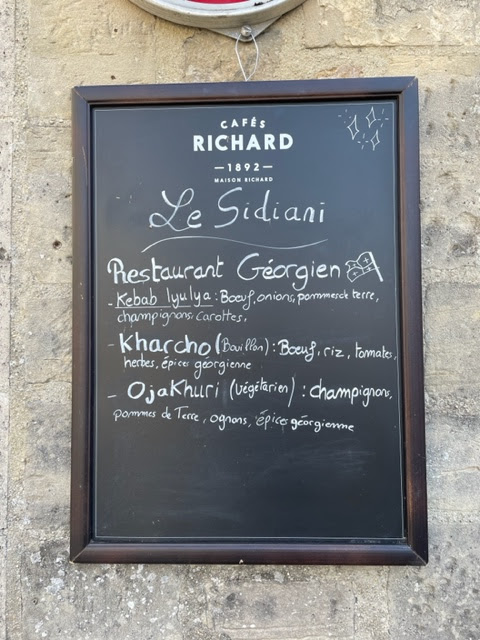 CAFÉS
RICHARD
—1892—
MAISON RICHARD
Le Sidiani
Restaurant Géorgien
- Kebab lyulya : Bœuf, onions, pommes de terre,
champignons, carottes,
- Kharcho (Bouillon) : Bœuf, riz, tomates,
herbes, épices géorgienne
- Ojakhuri (végétarien) : champignons,
pommes de Terre, ognons, épices géorgienne